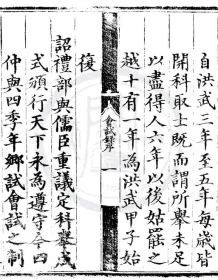 自洪武三年至五年每歲皆
開科取士既而謂所舉未足
以盡得人六年以後姑罷之
越十有一年為洪武甲子始
復
詔禮部與儒臣重議定科舉成
式頒行天下永為遵守今四
仲與四季年鄉試會試之制